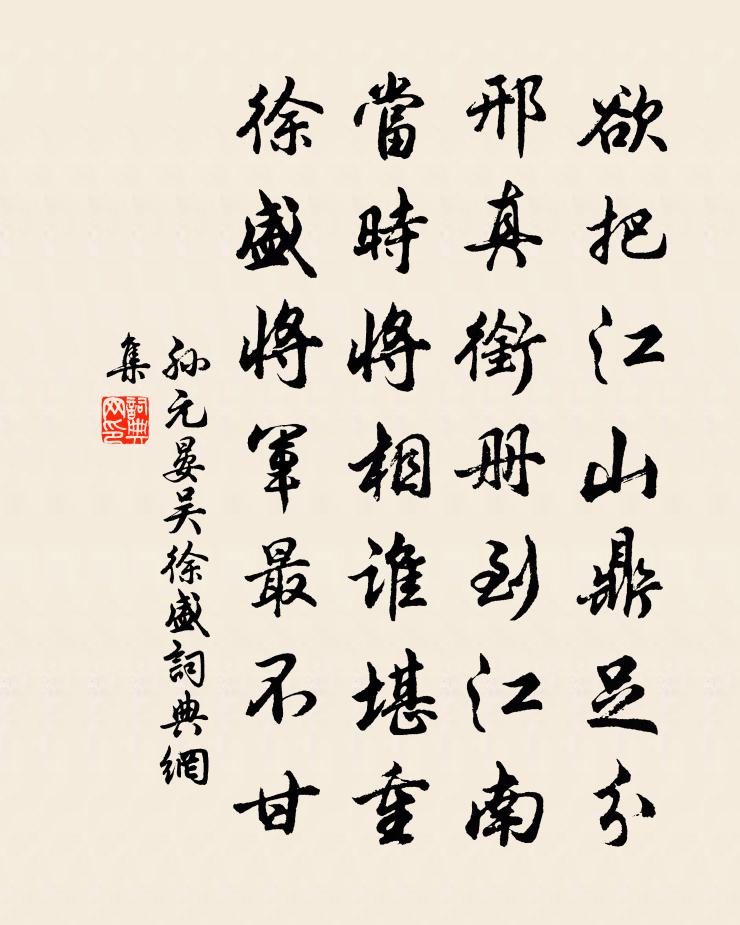 欲把江山鼎足分
邢真銜册到江南
當時將相誰堪重
徐盛將軍最不甘
孙元晏吴徐盛詞典網
集
詞典
网印